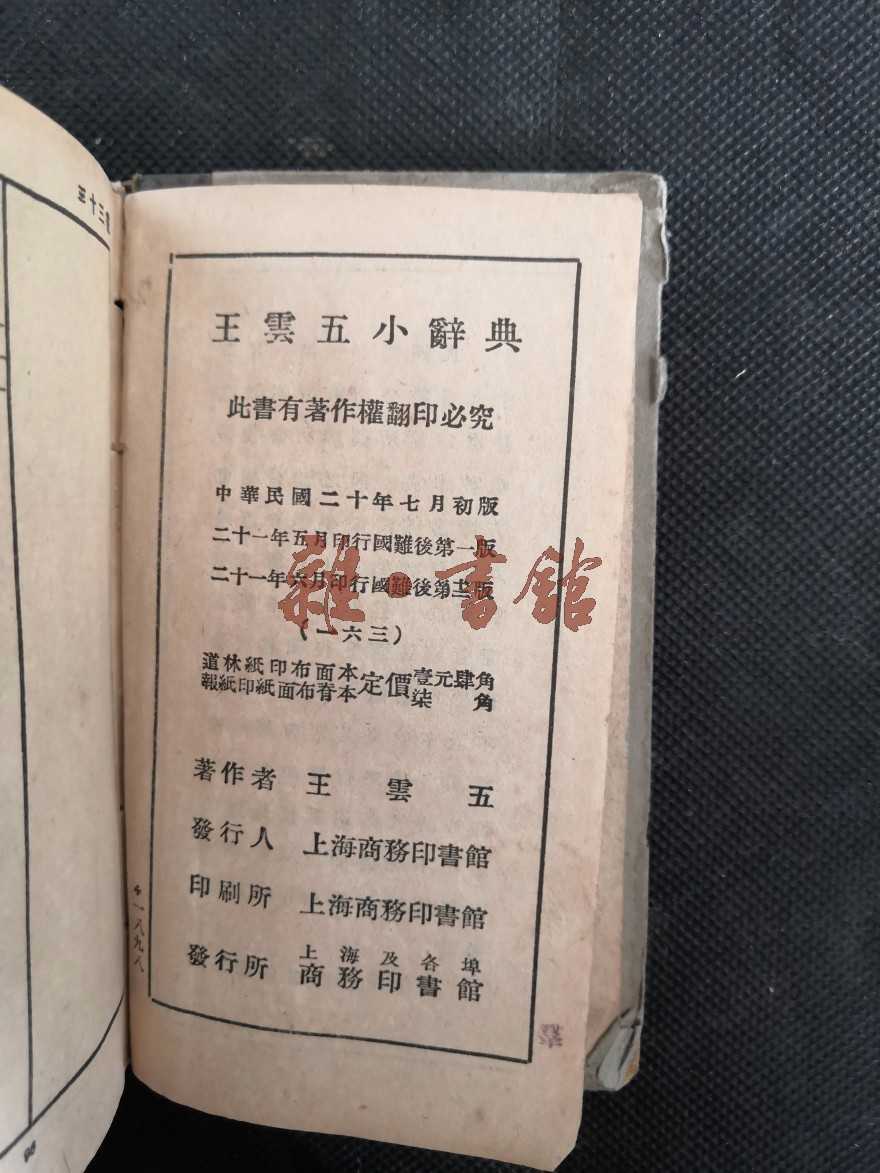 王雲五小辭典
此書有著作權翻印必究
中華民國二十年七月初版
二十一年五月印行國難後第一版
二十一年六月印行國難後第版
(一六三)
道林紙印布面本定價壹元肆角
報紙印紙面布脊本定價柒角
著作者 王雲五
發行人 上海商務印書館
印刷所 上海商務印書館
發行所 上海及各埠
商務印書館
一八九八
至十三
雜·書館